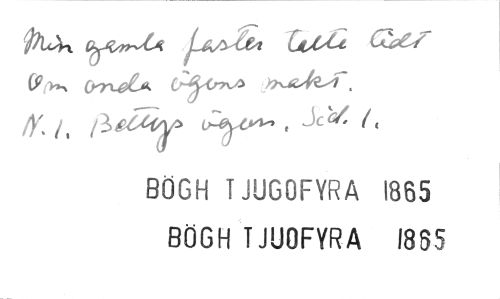 Min gamla faster talte tidt
Om onda ögons makt.
N. 1. Bettys ögon. Sid. 1.
BÖGH TJUGOFYRA 1865
BÖGH TJUOFYRA 1865